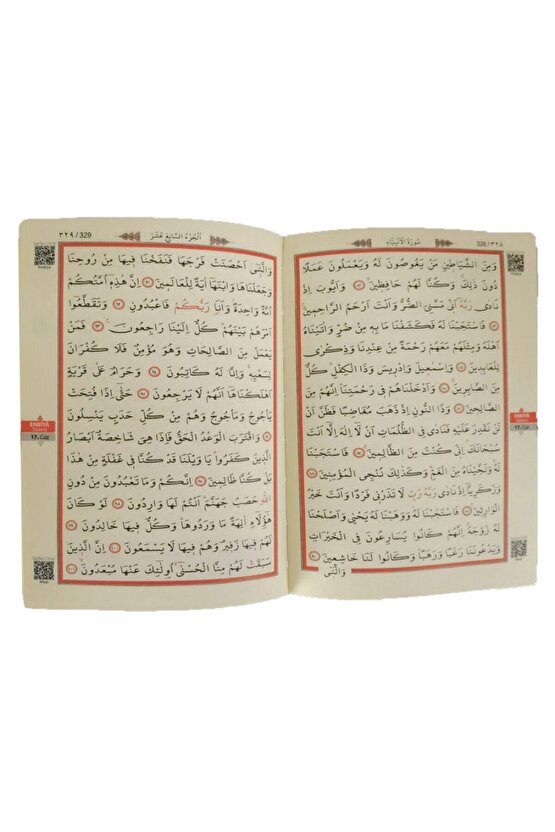 328 / ٣٢٨
سُورَةُ الْاَنْبِيَاءِ
وَمِنَ الشَّيَاطٖينِ مَنْ يَغُوصُونَ لَهُ وَيَعْمَلُونَ عَمَلًا
دُونَ ذٰلِكَ وَكُنَّا لَهُمْ حَافِظٖينَ ﴿٨٢﴾ وَاَيُّوبَ اِذْ
نَادٰى رَبَّهُٓ اَنّٖى مَسَّنِىَ الضُّرُّ وَاَنْتَ اَرْحَمُ الرَّاحِمٖينَ
﴿٨٣﴾ فَاسْتَجَبْنَا لَهُ فَكَشَفْنَا مَا بِهٖ مِنْ ضُرٍّ وَاٰتَيْنَاهُ
اَهْلَهُ وَمِثْلَهُمْ مَعَهُمْ رَحْمَةً مِنْ عِنْدِنَا وَذِكْرٰى
لِلْعَابِدٖينَ ﴿٨٤﴾ وَاِسْمٰعٖيلَ وَاِدْرٖيسَ وَذَا الْكِفْلِ كُلٌّ
مِنَ الصَّابِرٖينَ ﴿٨٥﴾ وَاَدْخَلْنَاهُمْ فٖى رَحْمَتِنَا اِنَّهُمْ مِنَ
الصَّالِحٖينَ ﴿٨٦﴾ وَذَا النُّونِ اِذْ ذَهَبَ مُغَاضِبًا فَظَنَّ اَنْ
لَنْ نَقْدِرَ عَلَيْهِ فَنَادٰى فِى الظُّلُمَاتِ اَنْ لَٓا اِلٰهَ اِلَّٓا اَنْتَ
سُبْحَانَكَ اِنّٖى كُنْتُ مِنَ الظَّالِمٖينَ ﴿٨٧﴾ فَاسْتَجَبْنَا
لَهُ وَنَجَّيْنَاهُ مِنَ الْغَمِّ وَكَذٰلِكَ نُنْجِى الْمُؤْمِنٖينَ ﴿٨٨﴾
وَزَكَرِيَّٓا اِذْ نَادٰى رَبَّهُ رَبِّ لَا تَذَرْنٖى فَرْدًا وَاَنْتَ خَيْرُ
الْوَارِثٖينَ ﴿٨٩﴾ فَاسْتَجَبْنَا لَهُ وَوَهَبْنَا لَهُ يَحْيٰى وَاَصْلَحْنَا
لَهُ زَوْجَهُ اِنَّهُمْ كَانُوا يُسَارِعُونَ فِى الْخَيْرَاتِ
وَيَدْعُونَنَا رَغَبًا وَرَهَبًا وَكَانُوا لَنَا خَاشِعٖينَ ﴿٩٠﴾
وَالَّتٖى
ENBİYA
Sûresi
17. Cüz
اَلْجُزْءُ السَّابِعَ عَشَرَ
٣٢٩ / 329
وَالَّتٖٓى اَحْصَنَتْ فَرْجَهَا فَنَفَخْنَا فٖيهَا مِنْ رُوحِنَا
وَجَعَلْنَاهَا وَابْنَهَٓا اٰيَةً لِلْعَالَمٖينَ ﴿٩١﴾ اِنَّ هٰذِهٖٓ اُمَّتُكُمْ
اُمَّةً وَاحِدَةً وَاَنَا۬ رَبُّكُمْ فَاعْبُدُونِ ﴿٩٢﴾ وَتَقَطَّعُٓوا
اَمْرَهُمْ بَيْنَهُمْ كُلٌّ اِلَيْنَا رَاجِعُونَ ﴿٩٣﴾ فَمَنْ
يَعْمَلْ مِنَ الصَّالِحَاتِ وَهُوَ مُؤْمِنٌ فَلَا كُفْرَانَ
لِسَعْيِهٖ وَاِنَّا لَهُ كَاتِبُونَ ﴿٩٤﴾ وَحَرَامٌ عَلٰى قَرْيَةٍ
اَهْلَكْنَاهَٓا اَنَّهُمْ لَا يَرْجِعُونَ ﴿٩٥﴾ حَتّٰٓى اِذَا فُتِحَتْ
يَاْجُوجُ وَمَاْجُوجُ وَهُمْ مِنْ كُلِّ حَدَبٍ يَنْسِلُونَ
﴿٩٦﴾ وَاقْتَرَبَ الْوَعْدُ الْحَقُّ فَاِذَا هِىَ شَاخِصَةٌ اَبْصَارُ
الَّذٖينَ كَفَرُوا يَا وَيْلَنَا قَدْ كُنَّا فٖى غَفْلَةٍ مِنْ هٰذَا
بَلْ كُنَّا ظَالِمٖينَ ﴿٩٧﴾ اِنَّكُمْ وَمَا تَعْبُدُونَ مِنْ دُونِ
اللّٰهِ حَصَبُ جَهَنَّمَ اَنْتُمْ لَهَا وَارِدُونَ ﴿٩٨﴾ لَوْ كَانَ
هٰٓؤُلَٓاءِ اٰلِهَةً مَا وَرَدُوهَا وَكُلٌّ فٖيهَا خَالِدُونَ ﴿٩٩﴾
لَهُمْ فٖيهَا زَفٖيرٌ وَهُمْ فٖيهَا لَا يَسْمَعُونَ ﴿١٠٠﴾ اِنَّ الَّذٖينَ
سَبَقَتْ لَهُمْ مِنَّا الْحُسْنٰٓى اُولٰٓئِكَ عَنْهَا مُبْعَدُونَ ﴿١٠١﴾
ENBİYA
Sûresi
17. Cüz